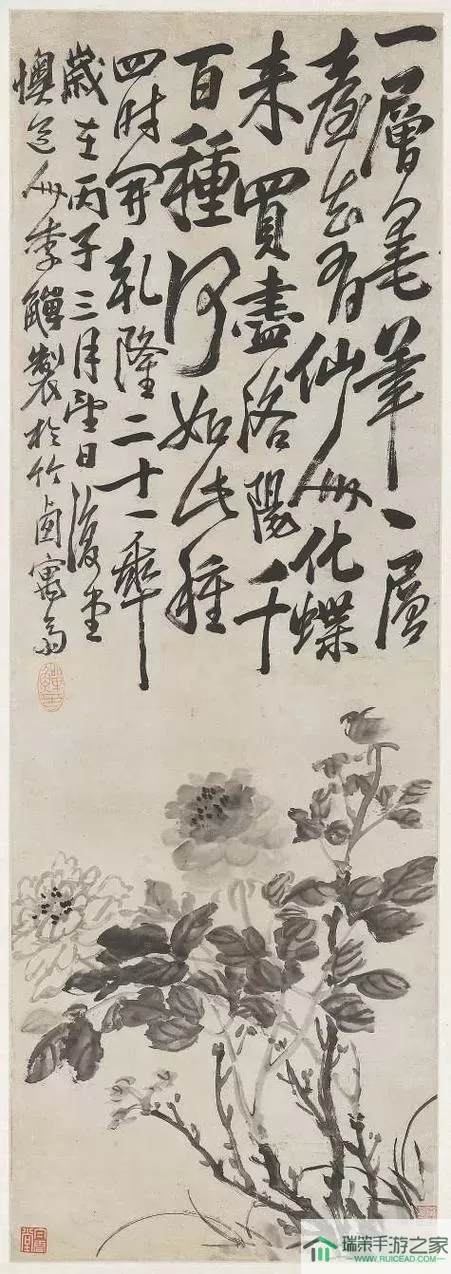 一層毫筆一層
臺定有仙人化蝶
来買盡洛陽千
百種何如此種
四时開乾隆二十一年
歲在丙子三月望日復堂
懊道人李鱓製於竹西寓齋
瑞荣手游之家
www.ruicead.com